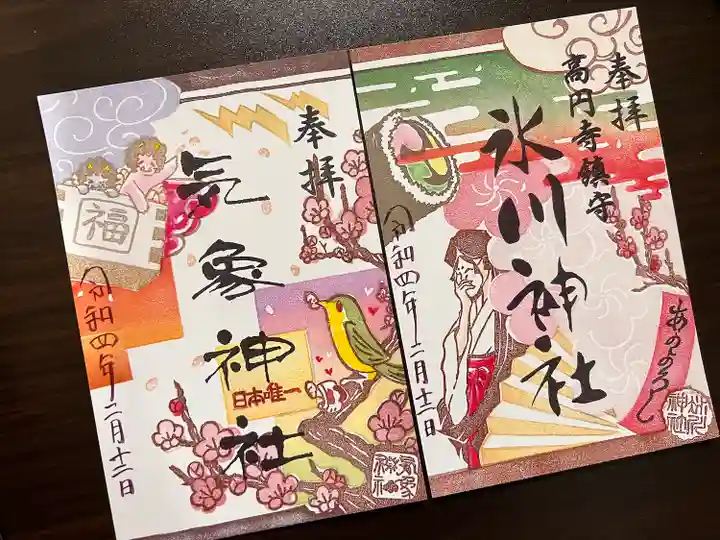 奉拝
気象神社
福
日本唯一
令和四年二月十二日
奉拝
高円寺鎮守
氷川神社
令和四年二月十二日